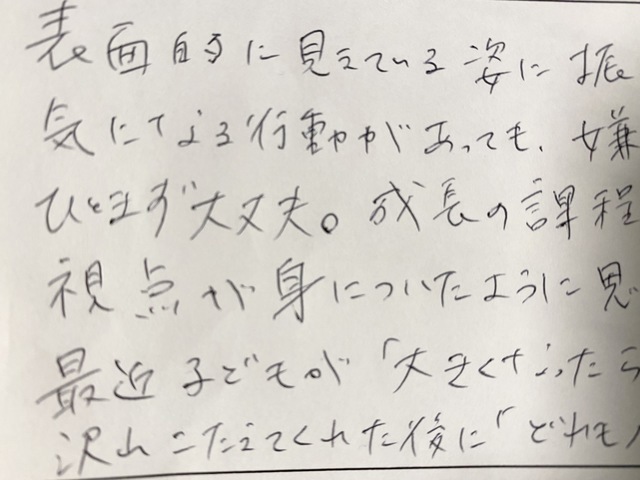 表面的に見えている姿に振
気になる行動があっても、嫌
ひとまず大丈夫。成長の課程
視点が身についたように思
最近子どもが「大きくなったら
沢山こたえてくれた後に「どれも